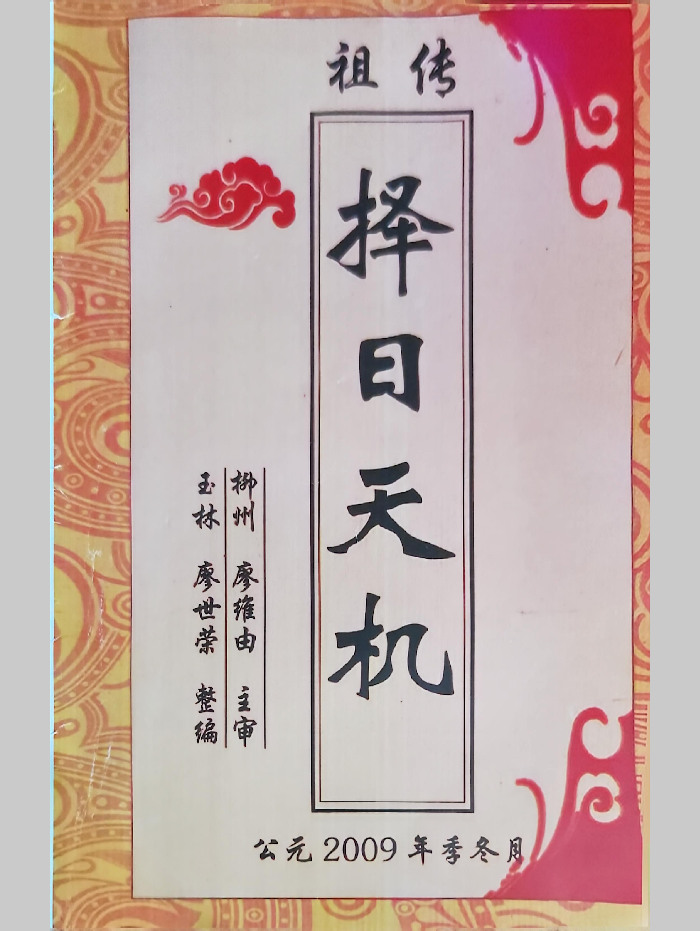 祖传
择日天机
柳州 廖维由 主审
玉林 廖世荣 整编
公元2009年季冬月